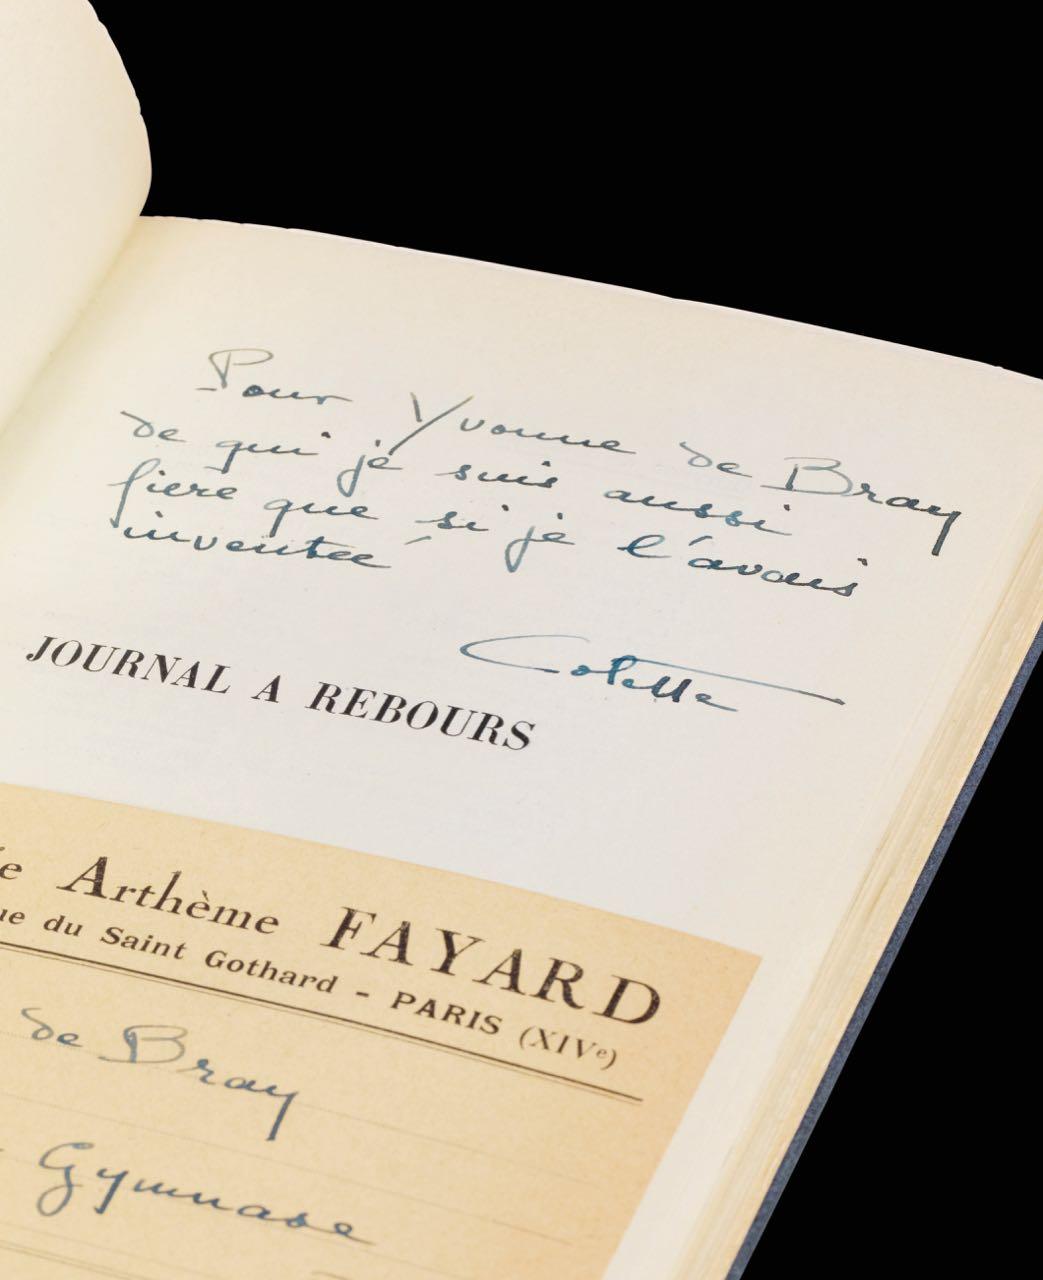 Pour Yvonne de Bray
de qui je suis aussi
fière que si je l'avais
inventée
Colette
JOURNAL A REBOURS
Arthème FAYARD
du Saint Gothard - PARIS (XIVe)
de Bray
Gymnase